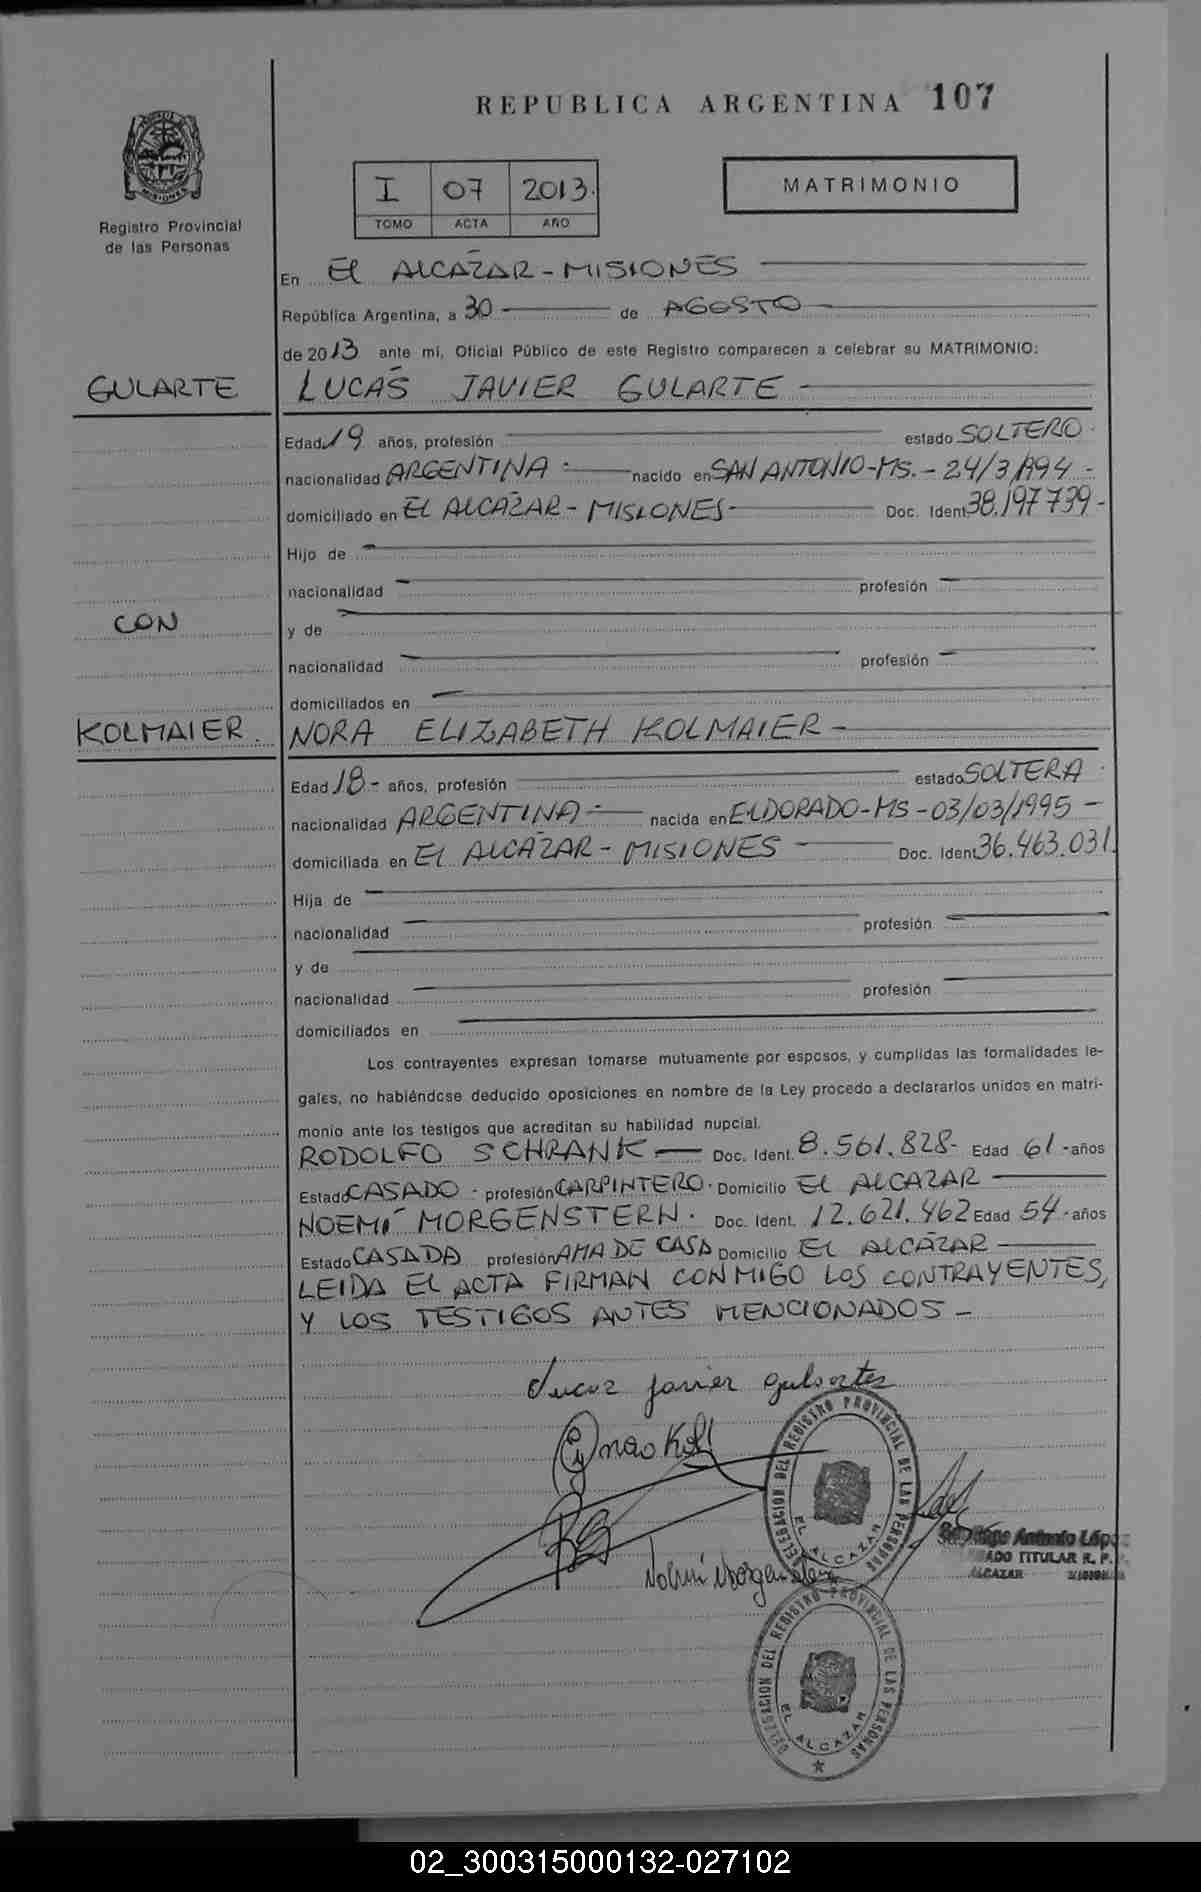 REPUBLICA ARGENTINA 107
Registro Provincial
de las Personas
I 07 2013.
TOMO ACTA AÑO
MATRIMONIO
En EL ALCAZAR - MISIONES
República Argentina, a 30 de AGOSTO
de 2013 ante mi, Oficial Público de este Registro comparecen a celebrar su MATRIMONIO:
GULARTE
LUCAS JAVIER GULARTE
Edad 19 años, profesión estado SOLTERO
nacionalidad ARGENTINA nacido en SAN ANTONIO-MS. - 24/3/1994 -
domiciliado en EL ALCAZAR - MISIONES - Doc. Ident 38.197739-
Hijo de
nacionalidad profesión
CON
y de
nacionalidad profesión
domiciliados en
KOLMAIER.
NORA ELIZABETH KOLMAIER -
Edad 18 - años, profesión estado SOLTERA
nacionalidad ARGENTINA - nacida en ELDORADO-MS - 03/03/1995 -
domiciliada en EL ALCAZAR - MISIONES Doc. Iden 36.463.031.
Hija de
nacionalidad profesión
y de
nacionalidad profesión
domiciliados en
Los contrayentes expresan tomarse mutuamente por esposos, y cumplidas las formalidades le-
gales, no habiéndose deducido oposiciones en nombre de la Ley procedo a declararlos unidos en matri-
monio ante los testigos que acreditan su habilidad nupcial.
RODOLFO SCHRANK - Doc. Ident. 8.561.828- Edad 61 - años
Estado CASADO - profesión CARPINTERO. Domicilio EL ALCAZAR
NOEMÍ MORGENSTERN. Doc. Ident. 12.621.462 Edad 54 - años
Estado CASADA profesión AMA DE CASA Domicilio EL ALCAZAR
LEIDA EL ACTA FIRMAN CONMIGO LOS CONTRAYENTES,
Y LOS TESTIGOS ANTES MENCIONADOS -
Lucas Javier Gularte
Noemi Morgenstern
DELEGACION DEL REGISTRO PROVINCIAL DE LAS PERSONAS
EL ALCAZAR
Antonio López
TITULAR R. P.
ALCAZAR
DELEGACION DEL REGISTRO PROVINCIAL DE LAS PERSONAS
EL ALCAZAR
02_300315000132-027102